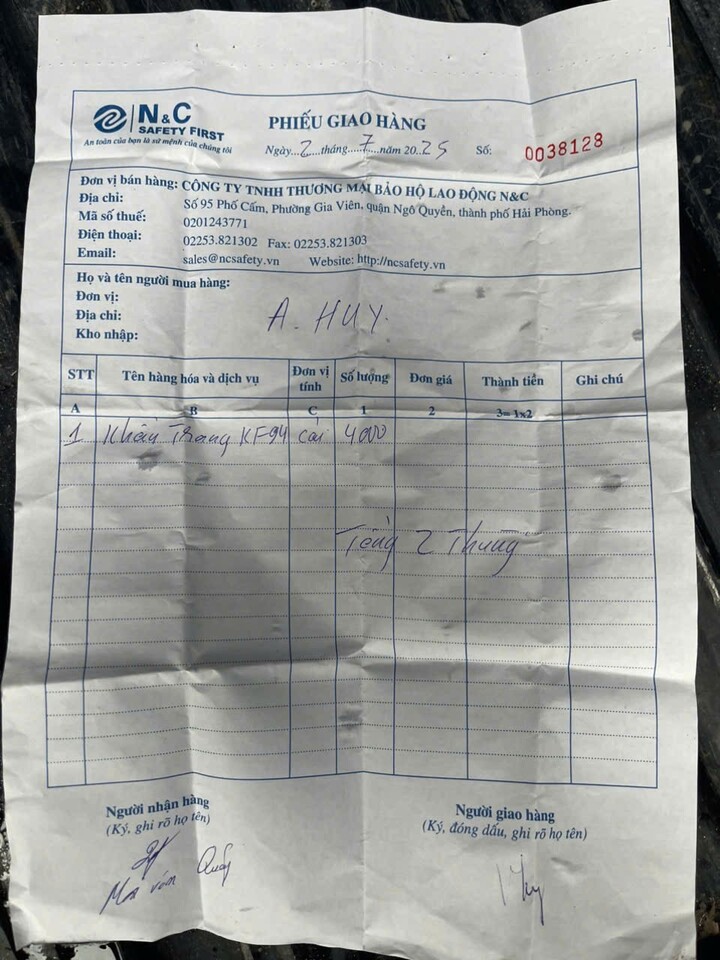 N&C
SAFETY FIRST
An toàn của bạn là sứ mệnh của chúng tôi
PHIẾU GIAO HÀNG
Ngày...2...tháng...7...năm 20..25
Số: 0038128
Đơn vị bán hàng: CÔNG TY TNHH THƯƠNG MẠI BẢO HỘ LAO ĐỘNG N&C
Địa chỉ: Số 95 Phố Cấm, Phường Gia Viên, quận Ngô Quyền, thành phố Hải Phòng.
Mã số thuế: 0201243771
Điện thoại: 02253.821302 Fax: 02253.821303
Email: sales@ncsafety.vn Website: http://ncsafety.vn
Họ và tên người mua hàng:
Đơn vị:
Địa chỉ: A. HUY.
Kho nhập:
STT Tên hàng hóa và dịch vụ Đơn vị tính Số lượng Đơn giá Thành tiền Ghi chú
A B C 1 2 3= 1x2
1 Khẩu Trang KF94 cái 4000
Tổng 2 Thùng
Người nhận hàng
(Ký, ghi rõ họ tên)
Người giao hàng
(Ký, đóng dấu, ghi rõ họ tên)
văn Quấy
Huy